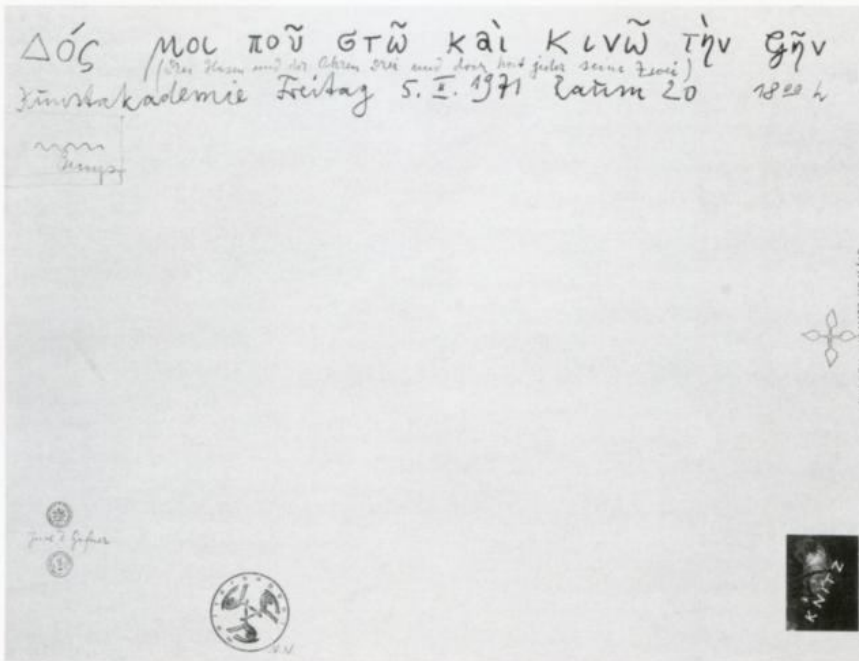 Δός μοι ποῦ στῶ καὶ κινῶ τὴν Gῆν
(Drei Hasen und der Ohren Drei und doch hat jeder seine Zwei)
Kunstakademie Freitag 5. II. 1971 Raum 20 18 00 h
KNITZ